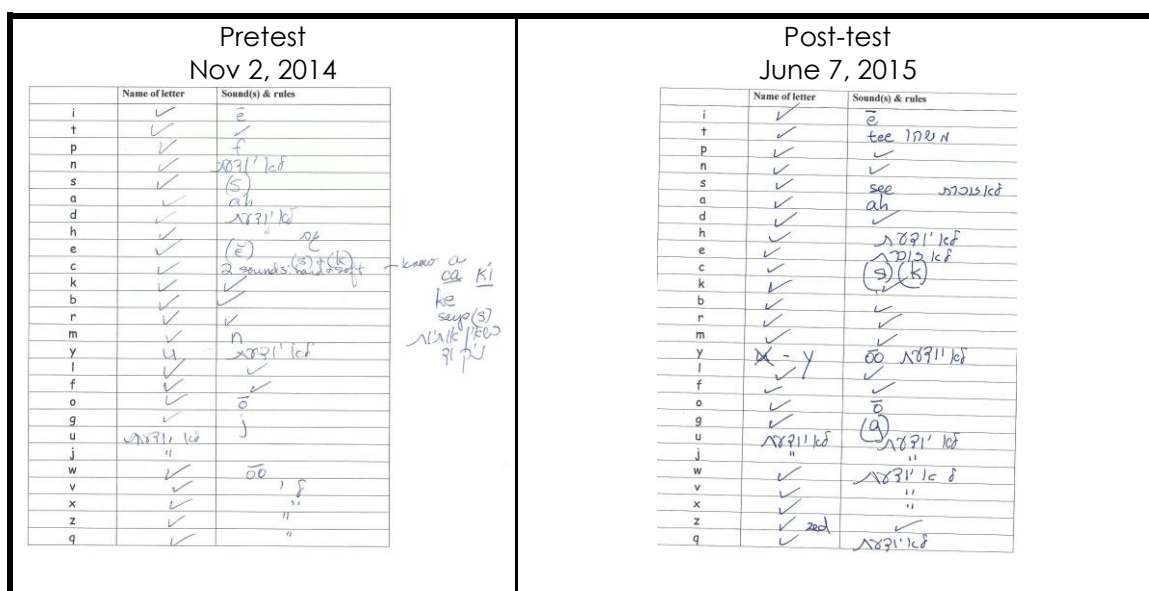 Pretest
Nov 2, 2014
Name of letter Sound(s) & rules
i ✓ ē
t ✓ ✓
p ✓ f
n ✓ לא יודעת
s ✓ (s)
a ✓ ah
d ✓ לא יודעת
h ✓ "
e ✓ (ē)
c ✓ 2 sounds: hard & soft (s) + (k) - know a
ca ki
k ✓ ✓
ke
b ✓ ✓
says (s)
r ✓ ✓
m ✓ n
y u לא יודעת
l ✓ ✓
f ✓ ✓
o ✓ ō
g ✓ j
u לא יודעת
j "
w ✓ ōō
v ✓
x ✓ "
z ✓ "
q ✓ "
Post-test
June 7, 2015
Name of letter Sound(s) & rules
i ✓ ē
t ✓ tee משהו
p ✓ ✓
n ✓ ✓
s ✓ see לא זוכרת
a ✓ ah
d ✓ ✓
h ✓ לא יודעת
e ✓ לא זוכרת
c ✓ (s) (k)
k ✓ ✓
b ✓ ✓
r ✓ ✓
m ✓ ✓
y x - y ōō לא יודעת
l ✓ ✓
f ✓ ✓
o ✓ ō
g ✓ (g)
u לא יודעת לא יודעת
j " "
w ✓ לא יודעת
v ✓ "
x ✓ "
z ✓ zed ✓
q ✓ לא יודעת